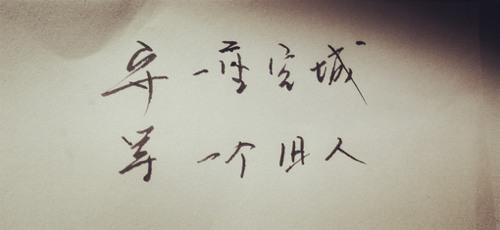 守一座空城
等一个旧人